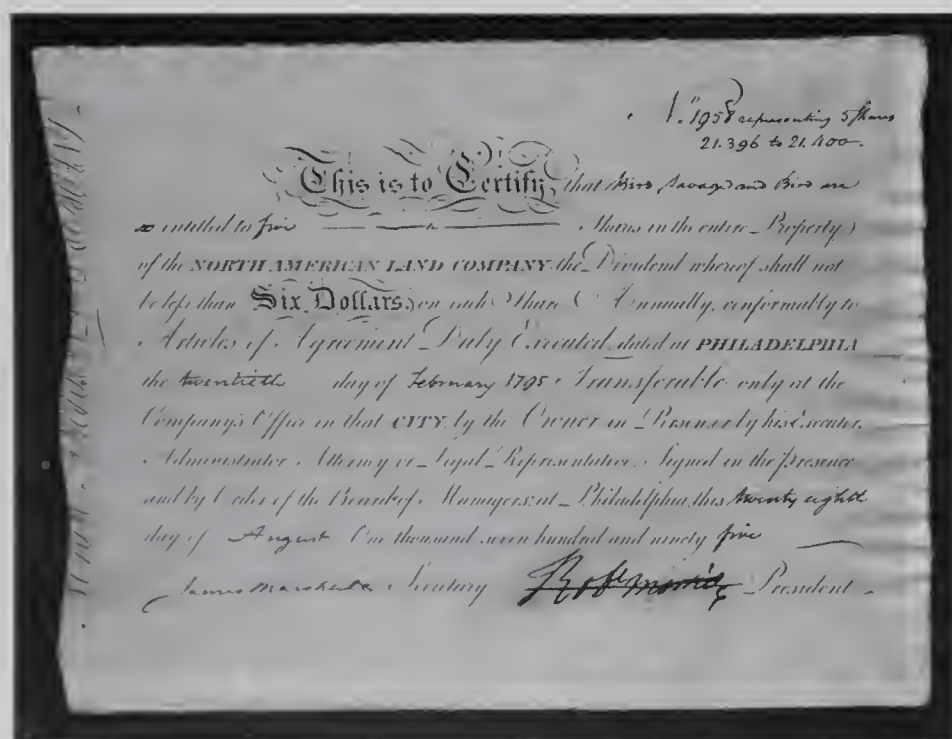 No. 1958 representing 5 Shares
21.396 to 21.400
This is to Certify, that Bird, Savage and Bird are
entitled to five Shares in the entire Property
of the NORTH AMERICAN LAND COMPANY, the Dividend whereof shall not
be less than Six Dollars on each Share Annually, conformably to
Articles of Agreement Duly Executed, dated at PHILADELPHIA
the twentieth day of February 1795. Transferable only at the
Company's Office in that CITY, by the Owner in Person or by his Executor,
Administrator Attorney or Legal Representative. Signed in the presence
and by Order of the Board of Managers, at Philadelphia, this twenty eighth
day of August One thousand seven hundred and ninety five
James Marshall Secretary Robt Morris President